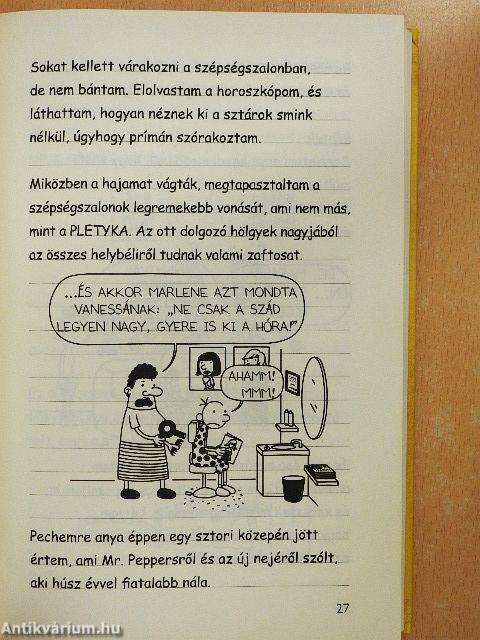 Sokat kellett várakozni a szépségszalonban,
de nem bántam. Elolvastam a horoszkópom, és
láthattam, hogyan néznek ki a sztárok smink
nélkül, úgyhogy prímán szórakoztam.
Miközben a hajamat vágták, megtapasztaltam a
szépségszalonok legremekebb vonását, ami nem más,
mint a PLETYKA. Az ott dolgozó hölgyek nagyjából
az összes helybéliről tudnak valami zaftosat.
...ÉS AKKOR MARLENE AZT MONDTA
VANESSÁNAK: „NE CSAK A SZÁD
LEGYEN NAGY, GYERE IS KI A HÓRA!"
AHAMM!
MMM!
Pechemre anya éppen egy sztori közepén jött
értem, ami Mr. Peppersről és az új nejéről szólt,
aki húsz évvel fiatalabb nála.
27
Antikvárium.hu